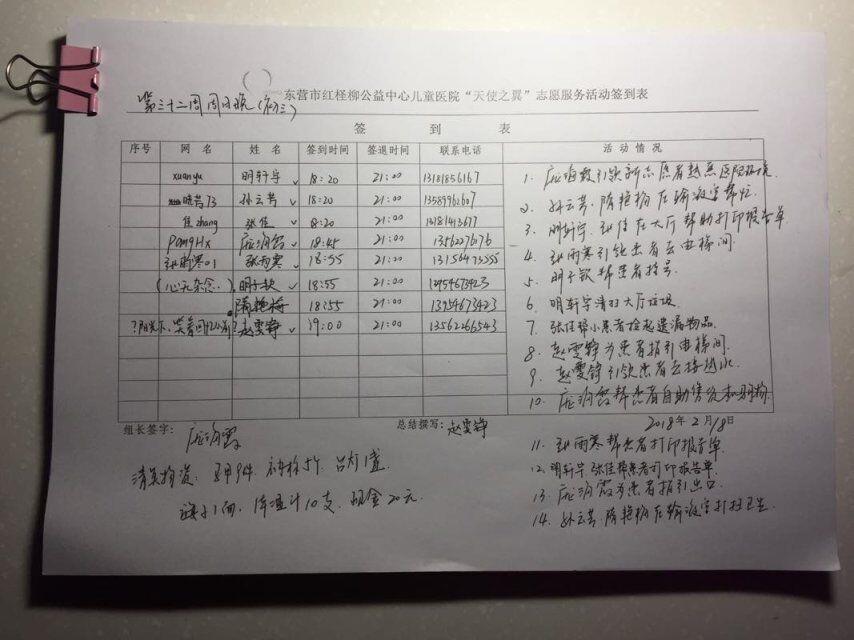 东营市红柽柳公益中心儿童医院“天使之翼”志愿服务活动签到表
第三十二周 周日晚（初三）
签 到 表
序号 网 名 姓 名 签到时间 签退时间 联系电话 活 动 情 况
xuanyu 明轩宇 18:20 21:00 13181856167
孙云芳 18:20 21:00
佳zhang 张佳 18:20 21:00 13181413677
PangHx 18:45 21:00 13562276176
张雨寒01 张雨寒 18:55 21:00 13156475255
(心无杂念.) 明子钦 18:55 21:00 13954673423
隋艳梅 18:55 21:00 13954673423
赵雯铮 19:00 21:00 13562266543
1. 引领新志愿者熟悉医院环境
2. 孙云芳、隋艳梅在输液室帮忙
3. 明轩宇、张佳在大厅帮助打印报告单
4. 张雨寒引领患者去电梯间
5. 明子钦帮患者挂号
6. 明轩宇清扫大厅垃圾
7. 张佳帮小患者捡起遗漏物品
8. 赵雯铮为患者指引电梯间
9. 赵雯铮引领患者去接热水
10. 帮患者自助售货机购物
组长签字：
总结撰写：赵雯铮
2018年2月18日
11. 张雨寒帮患者打印报告单
12. 明轩宇 张佳帮患者打印报告单
13. 为患者指引出口
14. 孙云芳 隋艳梅在输液室打扫卫生
清点物资： 马甲9件 台灯1盏
1面，体温计10支，现金20元